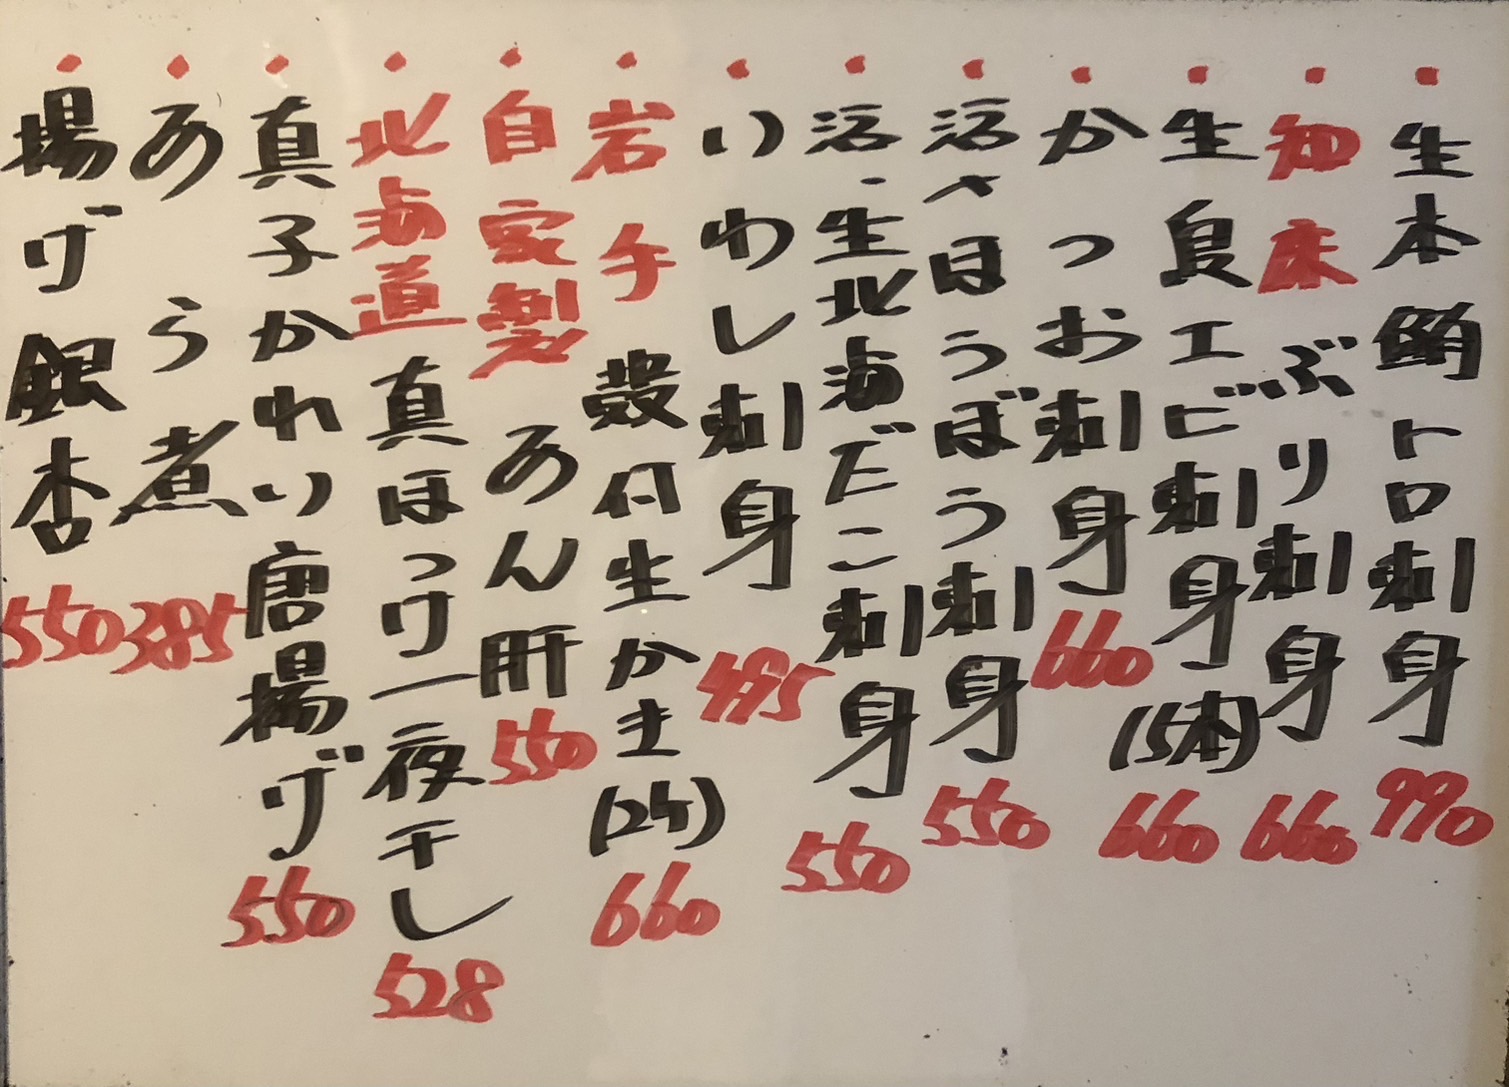 ・生本鮪トロ刺身 990
・知床ぶり刺身 660
・生食エビ刺身(15本) 660
・かつお刺身 660
・活〆ほうぼう刺身 550
・活・生北海だこ刺身 550
・いわし刺身 495
・岩手 殻付生かき(2ケ) 660
・自家製 あん肝 550
・北海道 真ほっけ一夜干し 528
・真子かれい唐揚げ 550
・あら煮 385
・揚げ銀杏 550